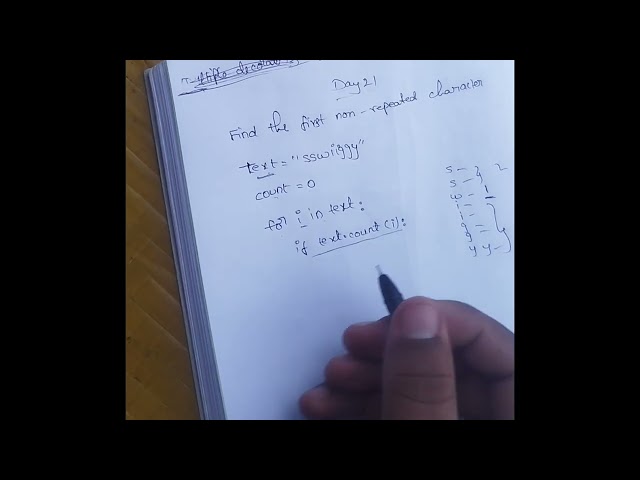 Day 21
Find the first non-repeated character
text = "sswiggy"
count = 0
for i in text:
if text.count(i):
s - } 2
s -
w - 1
i -
i -
g -
g -
y y -